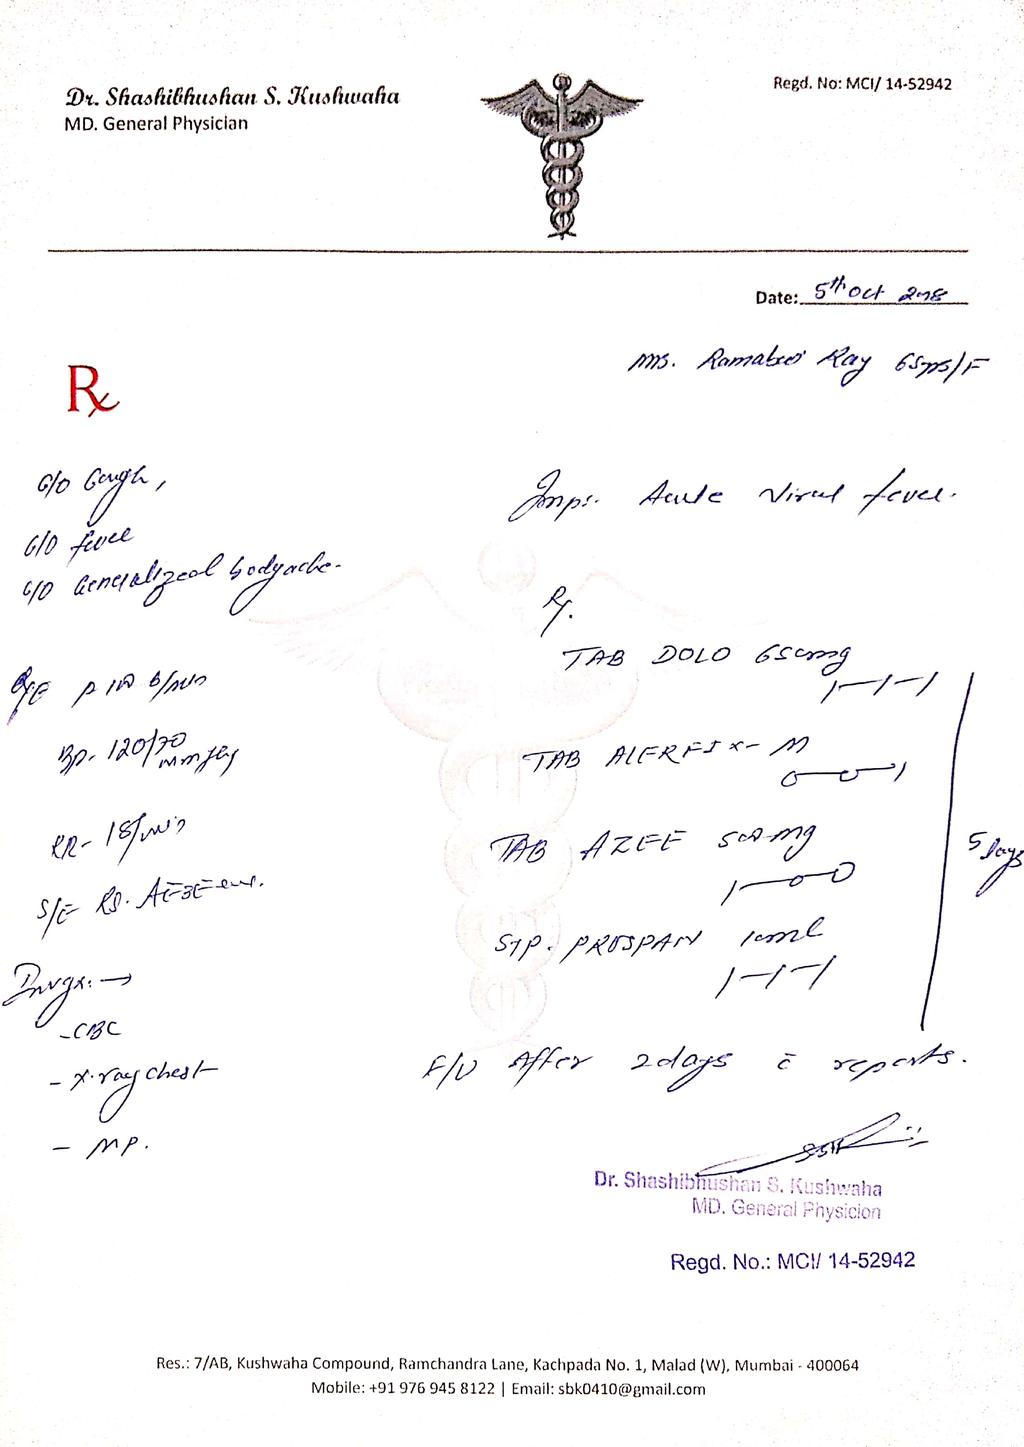 Dr. Shashibhushan S. Kushwaha
MD. General Physician
Regd. No: MCI/ 14-52942
Date: 5th Oct 2018
Rx
Mrs. Ray 65yrs/F
C/O Cough,
C/O fever
C/O Generalized bodyache.
O/E P /min
BP. 120/70 mmHg
RR- 18/min
S/E RS. AEBE
Invgx. →
- CBC
- X-ray chest
- MP.
Imps. Acute Viral fever.
Rx.
TAB DOLO 650mg
1-1-1
TAB ALERFIX-M
0-0-1
TAB AZEE 500mg
1-0-0
SYP. PROSPAN 10ml
1-1-1
5 days
F/U After 2 days c̄ reports.
Dr. Shashibhushan S. Kushwaha
MD. General Physicion
Regd. No.: MCI/ 14-52942
Res.: 7/AB, Kushwaha Compound, Ramchandra Lane, Kachpada No. 1, Malad (W), Mumbai - 400064
Mobile: +91 976 945 8122 | Email: sbk0410@gmail.com